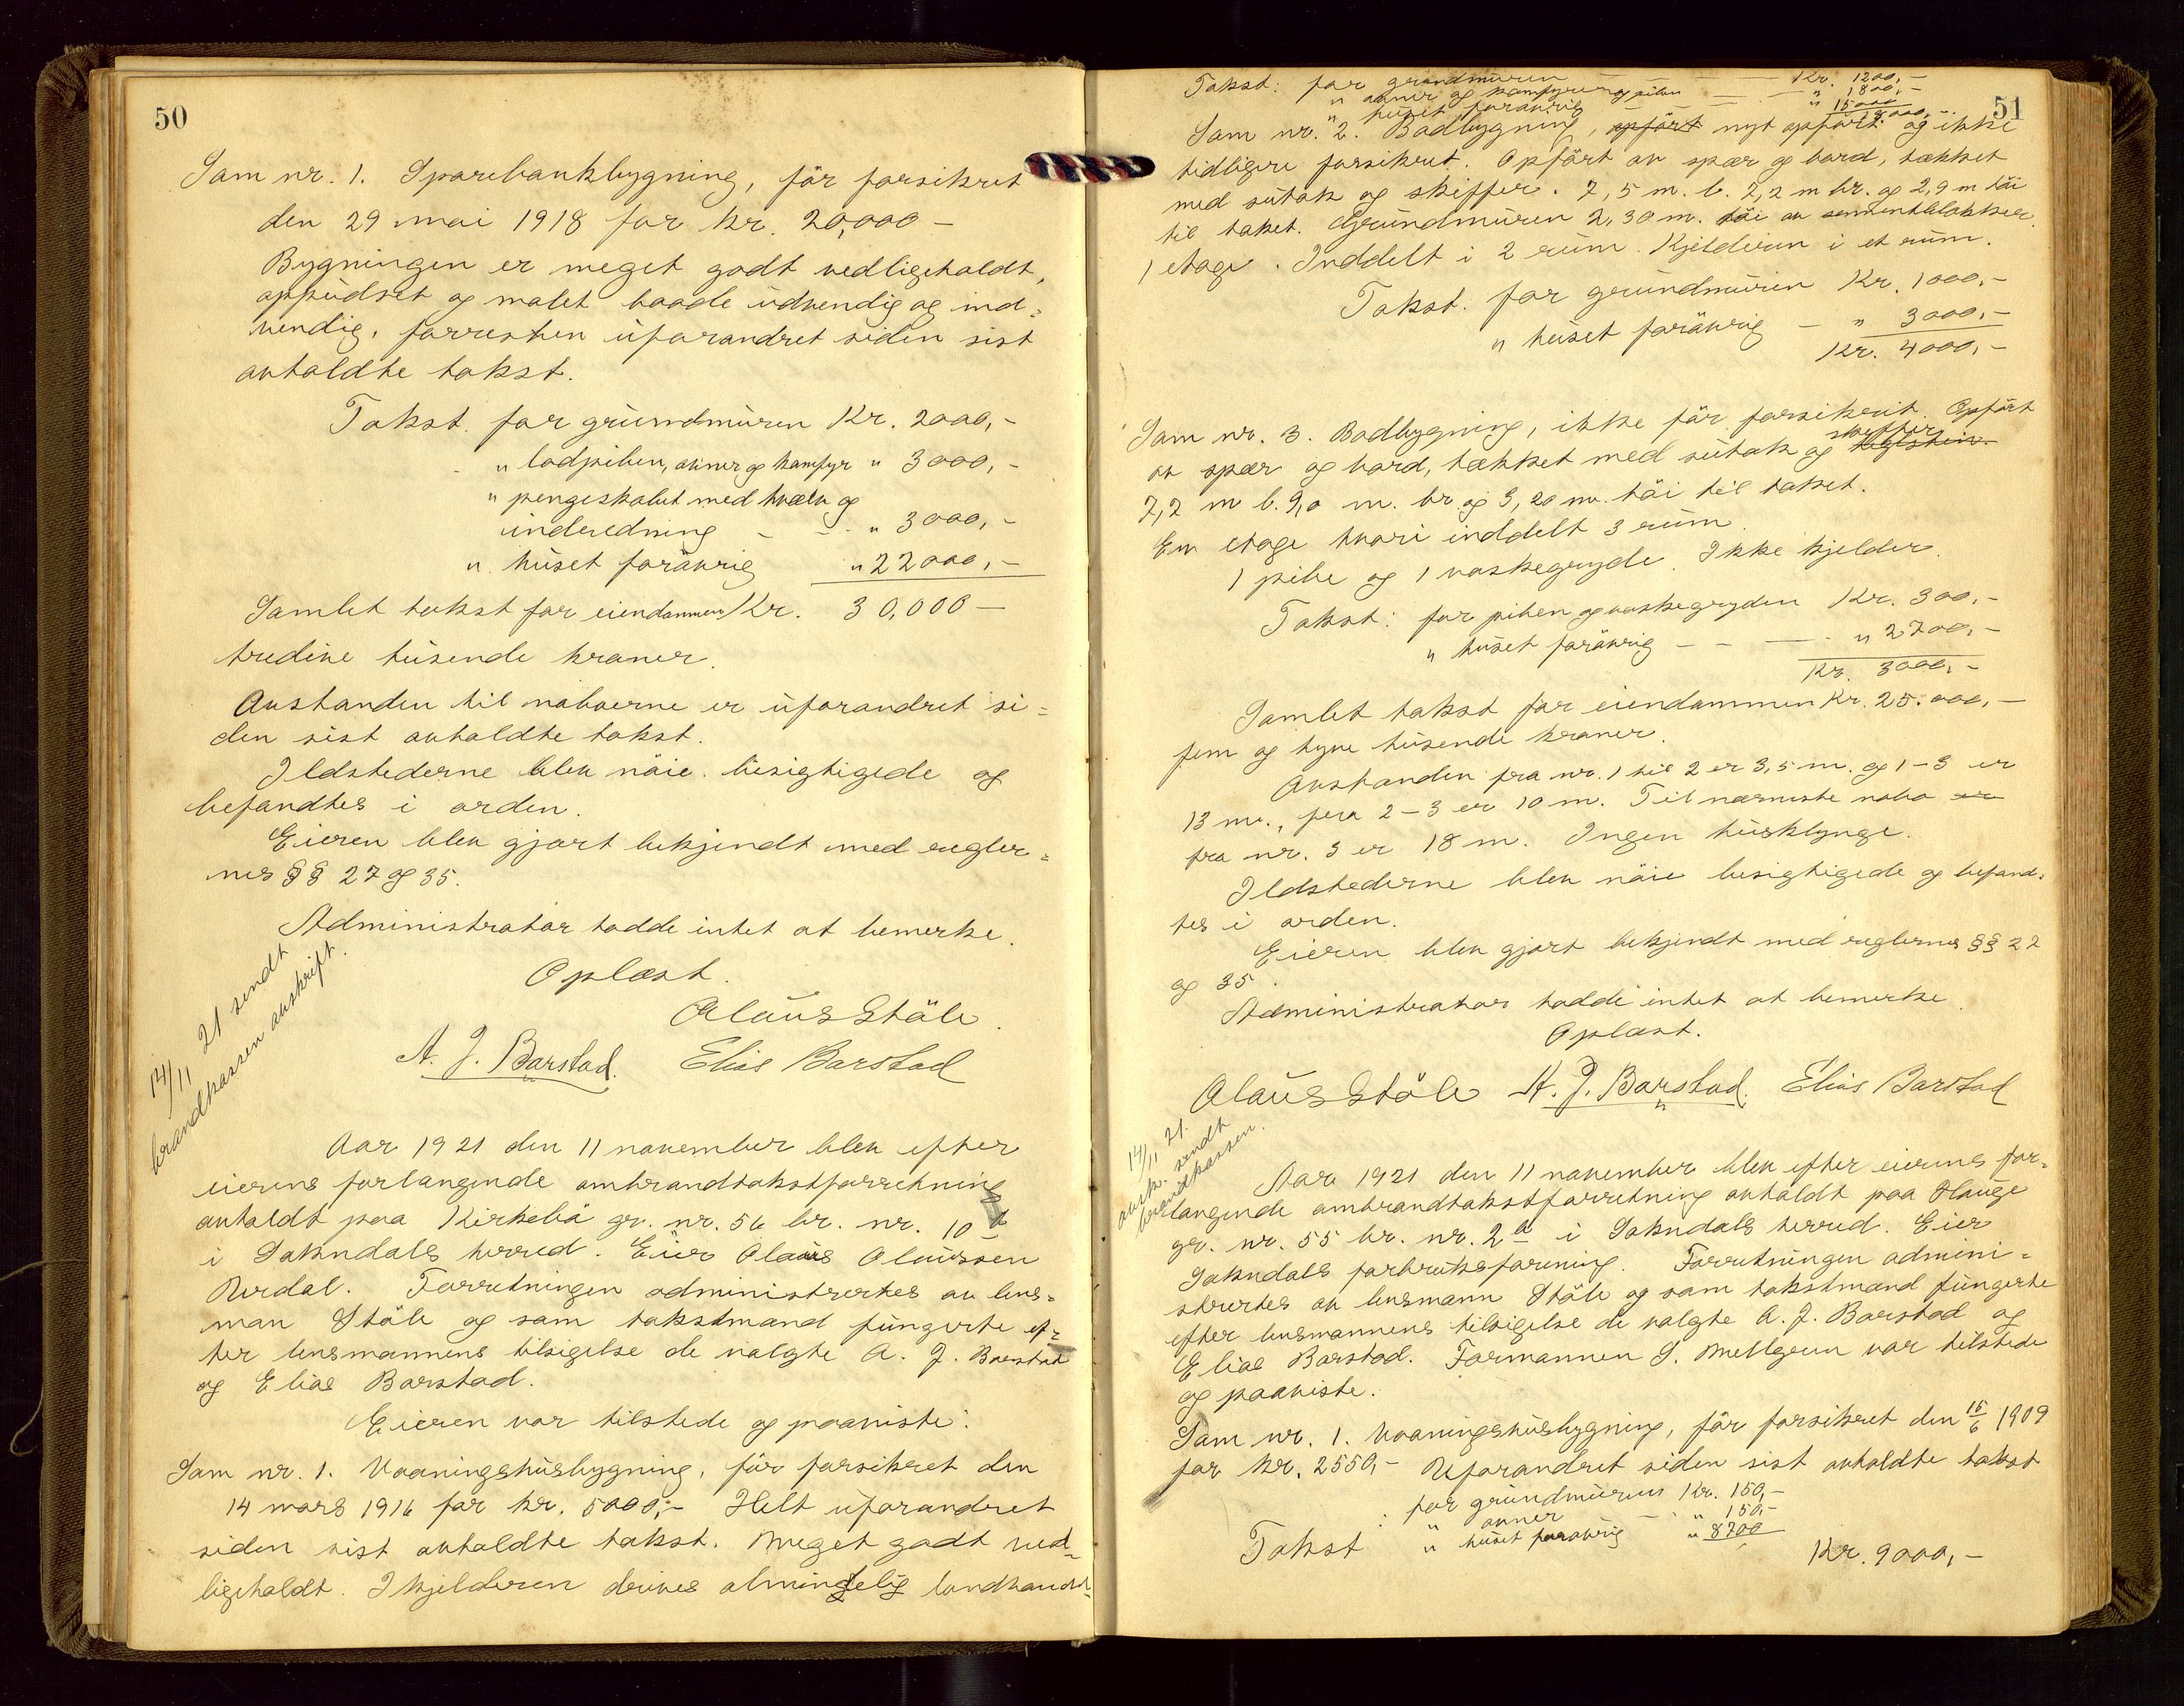 50
Som nr. 1. Sparebankbygning, før forsikret
den 29 mai 1918 for kr. 20,000 –
Bygningen er meget godt vedligeholdt,
oppudset og malet baade utvendig og ind-
vendig, forresten uforandret siden sist
avholdte takst.
Takst. for grundmuren Kr. 2000,-
" lodpiben, ovner og komfyr " 3000,-
" pengeskabet med hvælv og
inderedning - - " 3000,-
" huset forøvrig " 22000,-
Samlet takst for eiendommen Kr. 30,000 –
tredive tusende kroner.
Avstanden til naboerne er uforandret si-
den sist avholdte takst.
Ildstederne blev nøie besigtigede og
befandtes i orden.
Eieren blev gjort bekjendt med regler-
nes §§ 27 og 35.
Administrator hadde intet at bemerke.
Oplæst.
Olaus Støle.
A. J. Barstad. Elias Barstad
14/11 21 sendt
brandkassen avskrift.
Aar 1921 den 11 november blev efter
eierens forlangende ombrandtakstforretning
avholdt paa Kirkebø gr. nr. 56 br. nr. 10
i Sokndals herred. Eier Olaus Olaussen
Urdal. Forretningen administrertes av lens-
man Støle og som takstmænd fungerte ef-
ter lensmannens tilsigelse de valgte A. J. Barstad
og Elias Barstad.
Eieren var tilstede og paaviste:
Som nr. 1. Vaaningshusbygning, før forsikret den
14 mars 1916 for kr. 5000,- Helt uforandret
siden sist avholdte takst. Meget godt ved-
ligeholdt. I kjelderen drives almindelig landhandel-
51
Takst: for grundmuren - - - Kr. 1200,-
" ovner og komfyrer og piben - - " 1800,-
" huset forøvrig - - - " 15000
18000,-
Som nr. 2. Bodbygning, opført nyt opført og ikke
tidligere forsikret. Opført av spær og bord, tækket
med sutak og skiffer. 7,5 m. l. 7,2 m br. og 2,9 m høi
til taket. Grundmuren 2,30 m. høi av sementblokker.
1 etage. Inddelt i 2 rum. Kjelderen i et rum.
Takst. for grundmuren Kr. 1000,-
" huset forøvrig - " 3000,-
Kr. 4000,-
Som nr. 3. Bodbygning, ikke før forsikret. Opført
av spær og bord, tækket med sutak og teglstein skiffer
7,2 m l. 9,0 m. br. og 3,20 m. høi til taket.
En etage hvori inddelt 3 rum.
1 pibe og 1 vaskegryde. Ikke kjelder.
Takst: for piben og vaskegryden Kr. 300,-
" huset forøvrig - - - " 2700,-
Kr. 3000,-
Samlet takst for eiendommen Kr. 25.000,-
fem og tyve tusende kroner.
Avstanden fra nr. 1 til 2 er 3,5 m. og 1–3 er
13 m., fra 2–3 er 10 m. Til nærmeste nabo er
fra nr. 3 er 18 m. Ingen husklynge.
Ildstederne blev nøie besigtigede og befand-
tes i orden.
Eieren blev gjort bekjendt med reglernes §§ 27
og 35.
Administrator hadde intet at bemerke.
Oplæst.
Olaus Støle A. J. Barstad. Elias Barstad
14/11 21.
avsk. sendt
brandkassen.
Aar 1921 den 11 november blev efter eierens for-
langende ombrandtakstforretning avholdt paa Hauge
gr. nr. 55 br. nr. 2 a i Sokndals herred. Eier
Sokndals forbruksforening. Forretningen admini-
strertes av lensmann Støle og som takstmænd fungerte
efter lensmannens tilsigelse de valgte A. J. Barstad og
Elias Barstad. Formannen S. Mellgren var tilstede
og paaviste.
Som nr. 1. Vaaningshusbygning, før forsikret den 15/6 1909
for kr. 2550,- Uforandret siden sist avholdte takst
Takst: for grundmuren Kr. 150,-
" ovner - " 150,-
" huset forøvrig " 8700
Kr. 9000,-